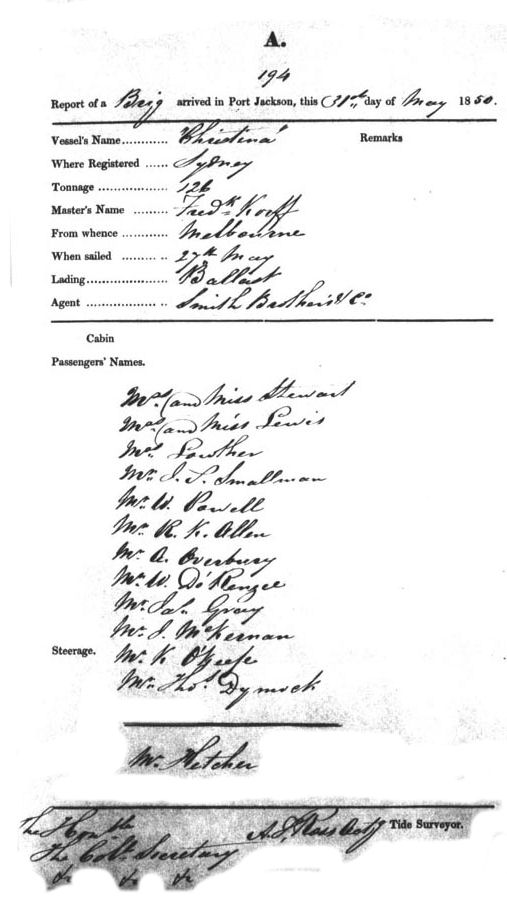 A.
194
Report of a Brig arrived in Port Jackson, this 31st day of May 1850.
Vessel's Name............ Christina Remarks
Where Registered ...... Sydney
Tonnage .................. 126
Master's Name ......... Fredk Korff
From whence ............ Melbourne
When sailed ......... .. 27th May
Lading..................... Ballast
Agent .................. .. Smith Brothers & Co
Cabin
Passengers' Names.
Mrs and Miss Stewart
Mrs and Miss Lewis
Mrs Lowther
Mr J. S. Smallman
Mr W. Powell
Mr R. K. Allen
Mr A. Overbury
Mr W. De Renzee
Mr Jas. Gray
Mr J. McKernan
Steerage. Mr K. O'Keefe
Mr Thos. Dymock
Mr Fletcher
The Honble A. S. Ross Actg Tide Surveyor.
The Coll. Secretary
&c &c &c